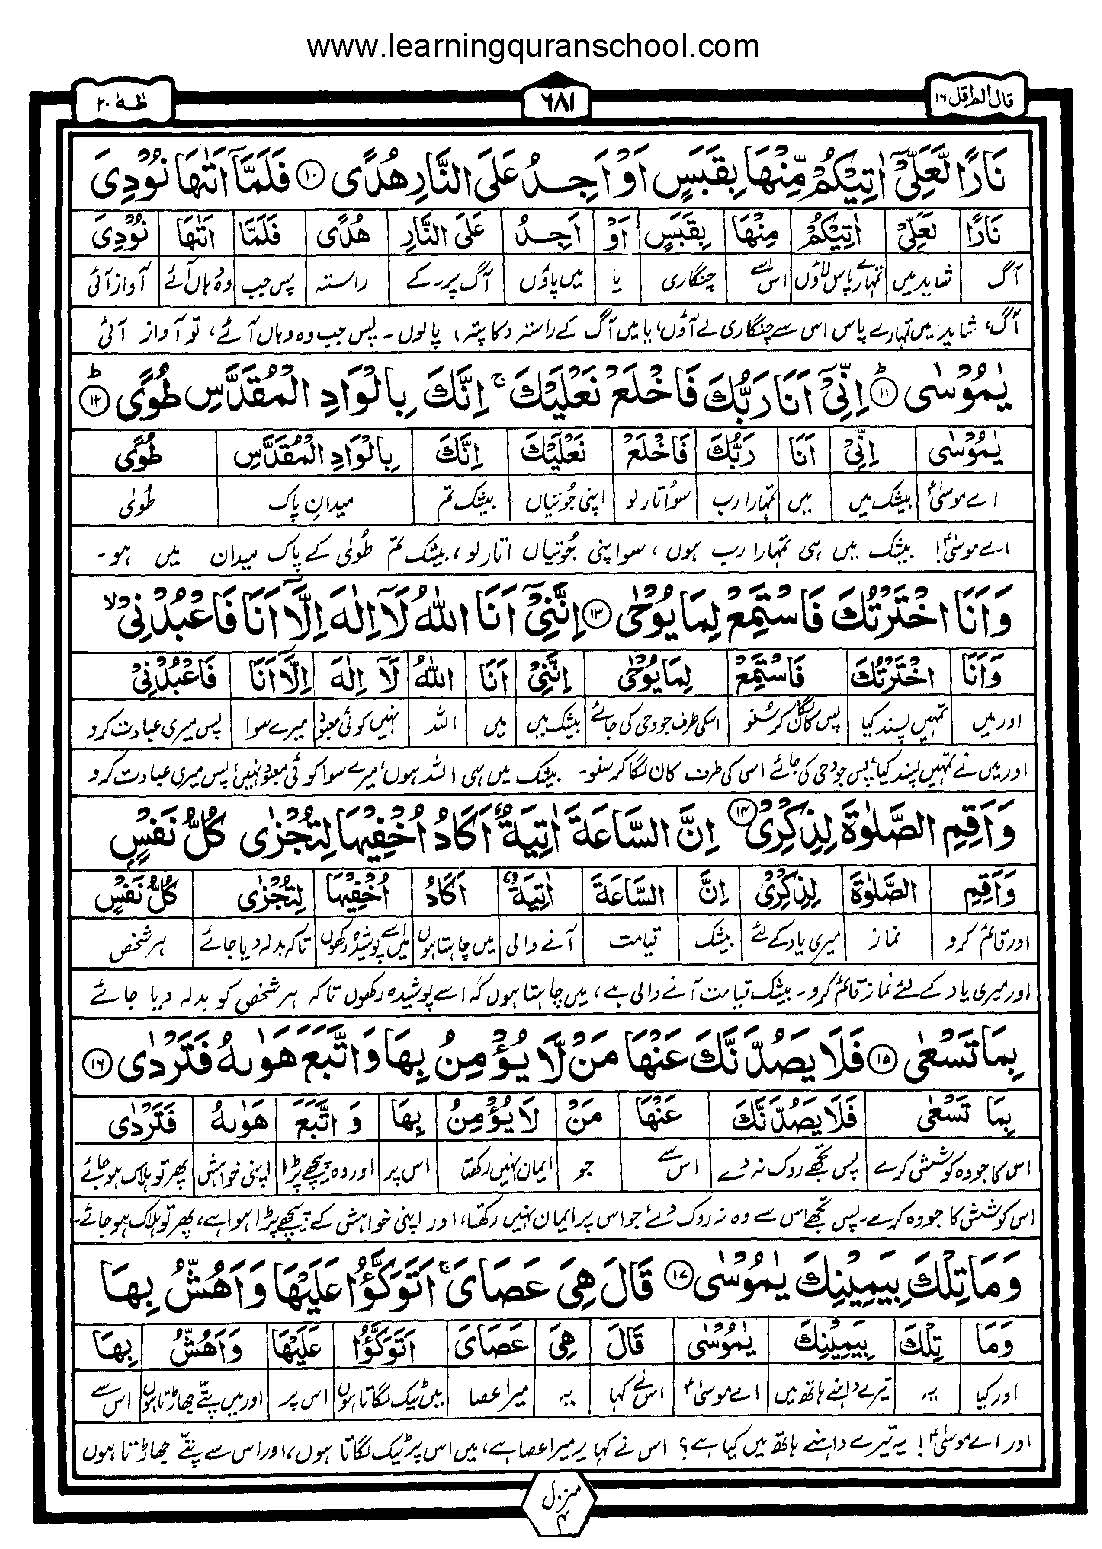 www.learningquranschool.com
قال الم اقل ١٦
٦٨١
طٰهٰ ٢٠
نَارًا لَّعَلِّیْۤ اٰتِیْكُمْ مِّنْهَا بِقَبَسٍ اَوْ اَجِدُ عَلَی النَّارِ هُدًی ۝١٠ فَلَمَّاۤ اَتٰىهَا نُوْدِیَ
نَارًا لَعَلِّیْ اٰتِیْكُمْ مِنْهَا بِقَبَسٍ اَوْ اَجِدُ عَلَی النَّارِ هُدًی فَلَمَّا اَتٰىهَا نُوْدِیَ
آگ شاید میں تمہارے پاس لاؤں اس سے چنگاری یا میں پاؤں آگ پر۔ کے راستہ پس جب وہ وہاں آئے آواز آئی
آگ، شاید میں تمہارے پاس اس سے چنگاری لے آؤں، یا میں آگ کے راستہ کا پتہ، پالوں۔ پس جب وہ وہاں آئے، تو آواز آئی
یٰمُوْسٰی ۝١١ؕ اِنِّیْۤ اَنَا رَبُّكَ فَاخْلَعْ نَعْلَیْكَ ۚ اِنَّكَ بِالْوَادِ الْمُقَدَّسِ طُوًی ۝١٢ؕ
یٰمُوْسٰی اِنِّیْ اَنَا رَبُّكَ فَاخْلَعْ نَعْلَیْكَ اِنَّكَ بِالْوَادِ الْمُقَدَّسِ طُوًی
اے موسیٰؑ بیشک میں میں تمہارا رب سو اتار لو اپنی جوتیاں بیشک تم میدانِ پاک طُویٰ
اے موسیٰؑ! بیشک میں ہی تمہارا رب ہوں، سو اپنی جوتیاں اتار لو، بیشک تم طُویٰ کے پاک میدان میں ہو۔
وَاَنَا اخْتَرْتُكَ فَاسْتَمِعْ لِمَا یُوْحٰی ۝١٣ اِنَّنِیْۤ اَنَا اللّٰهُ لَاۤ اِلٰهَ اِلَّاۤ اَنَا فَاعْبُدْنِیْ ۙ
وَاَنَا اخْتَرْتُكَ فَاسْتَمِعْ لِمَا یُوْحٰی اِنَّنِیْ اَنَا اللّٰهُ لَاۤ اِلٰهَ اِلَّاۤ اَنَا فَاعْبُدْنِیْ
اور میں تمہیں پسند کیا پس کان لگا کر سُنو اسکی طرف جو وحی کی جائے بیشک میں میں اللہ نہیں کوئی معبود میرے سوا پس میری عبادت کرو
اور میں نے تمہیں پسند کیا، پس جو وحی کی جائے اس کی طرف کان لگا کر سنو۔ بیشک میں ہی اللہ ہوں، میرے سوا کوئی معبود نہیں، پس میری عبادت کرو
وَاَقِمِ الصَّلٰوةَ لِذِكْرِیْ ۝١٤ اِنَّ السَّاعَةَ اٰتِیَةٌ اَكَادُ اُخْفِیْهَا لِتُجْزٰی كُلُّ نَفْسٍۭ
وَاَقِمِ الصَّلٰوةَ لِذِكْرِیْ اِنَّ السَّاعَةَ اٰتِیَةٌ اَكَادُ اُخْفِیْهَا لِتُجْزٰی كُلُّ نَفْسٍ
اور قائم کرو نماز میری یاد کے لئے بیشک قیامت آنے والی میں چاہتا ہوں میں اسے پوشیدہ رکھوں تاکہ بدلہ دیا جائے ہر شخص
اور میری یاد کے لئے نماز قائم کرو۔ بیشک قیامت آنے والی ہے، میں چاہتا ہوں کہ اسے پوشیدہ رکھوں تاکہ ہر شخص کو بدلہ دیا جائے
بِمَا تَسْعٰی ۝١٥ فَلَا یَصُدَّنَّكَ عَنْهَا مَنْ لَّا یُؤْمِنُ بِهَا وَاتَّبَعَ هَوٰىهُ فَتَرْدٰی ۝١٦
بِمَا تَسْعٰی فَلَا یَصُدَّنَّكَ عَنْهَا مَنْ لَا یُؤْمِنُ بِهَا وَ اتَّبَعَ هَوٰىهُ فَتَرْدٰی
اس کا جو وہ کوشش کرے پس تجھے روک نہ دے اس سے جو ایمان نہیں رکھتا اس پر اور وہ پیچھے پڑا اپنی خواہش پھر تو ہلاک ہو جائے
اس کوشش کا جو وہ کرے۔ پس تجھے اس سے وہ نہ روک دے، جو اس پر ایمان نہیں رکھتا، اور اپنی خواہش کے پیچھے پڑا ہوا ہے، پھر تو ہلاک ہو جائے۔
وَمَا تِلْكَ بِیَمِیْنِكَ یٰمُوْسٰی ۝١٧ قَالَ هِیَ عَصَایَ ۚ اَتَوَكَّؤُا عَلَیْهَا وَاَهُشُّ بِهَا
وَمَا تِلْكَ بِیَمِیْنِكَ یٰمُوْسٰی قَالَ هِیَ عَصَایَ اَتَوَكَّؤُا عَلَیْهَا وَاَهُشُّ بِهَا
اور کیا یہ تیرے داہنے ہاتھ میں اے موسیٰؑ اس نے کہا یہ میرا عصا میں ٹیک لگاتا ہوں اس پر اور میں پتے جھاڑتا ہوں اس سے
اور اے موسیٰؑ! یہ تیرے داہنے ہاتھ میں کیا ہے؟ اس نے کہا یہ میرا عصا ہے، میں اس پر ٹیک لگاتا ہوں، اور اس سے پتے جھاڑتا ہوں
منزل ۴